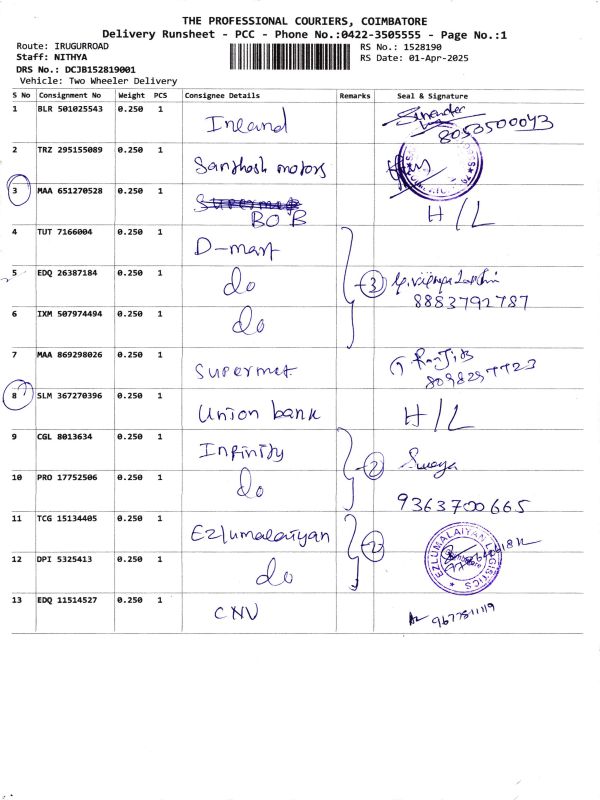 THE PROFESSIONAL COURIERS, COIMBATORE
Delivery Runsheet - PCC - Phone No.:0422-3505555 - Page No.:1
Route: IRUGURROAD RS No.: 1528190
Staff: NITHYA RS Date: 01-Apr-2025
DRS No.: DCJB152819001
Vehicle: Two Wheeler Delivery
S No Consignment No Weight PCS Consignee Details Remarks Seal & Signature
1 BLR 501025543 0.250 1 Inland
8053500043
2 TRZ 295155089 0.250 1 Santhosh motors
3 MAA 651270528 0.250 1 BOB H/L
4 TUT 7166004 0.250 1 D-mart
5 EDQ 26387184 0.250 1 do 3
8883792787
6 IXM 507974494 0.250 1 do
7 MAA 869298026 0.250 1 Supermet
8 SLM 367270396 0.250 1 Union bank H/L
9 CGL 8013634 0.250 1 Infinity 2
10 PRO 17752506 0.250 1 do 9363700665
11 TCG 15134405 0.250 1 Ezlumalaiyan 2
12 DPI 5325413 0.250 1 do EZLUMALAIYAN LOGISTICS
13 EDQ 11514527 0.250 1 CNV